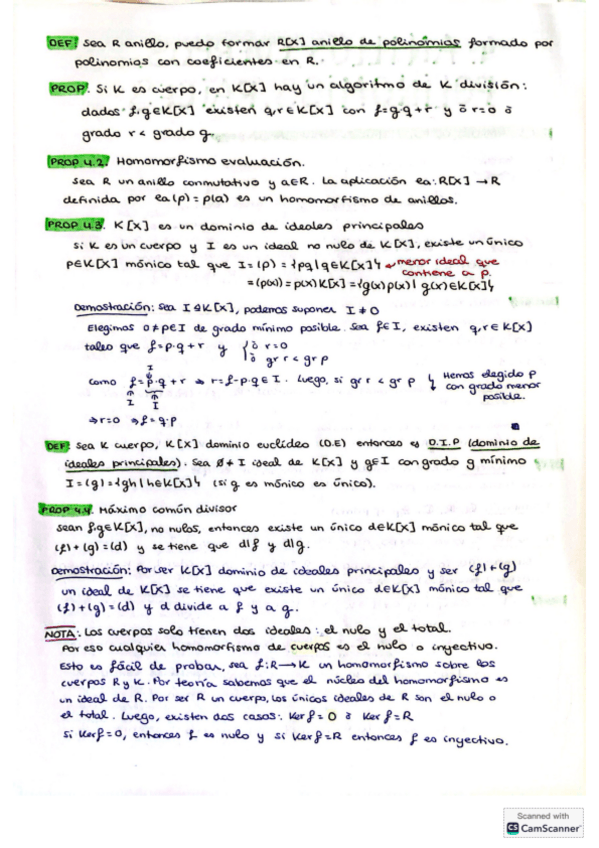 DEF: Sea R anillo, puedo formar R[X] anillo de polinomios formado por
polinomios con coeficientes en R.
PROP. Si K es cuerpo, en K[X] hay un algoritmo de K división:
dados f,g∈K[X] existen q,r∈K[X] con f=g·q+r y ó r=0 ó
grado r < grado g.
PROP 4.2. Homomorfismo evaluación.
Sea R un anillo conmutativo y a∈R. La aplicación ea: R[X] → R
definida por ea(p) = p(a) es un homomorfismo de anillos.
PROP 4.3. K[X] es un dominio de ideales principales
Si K es un cuerpo y I es un ideal no nulo de K[X], existe un único
p∈K[X] mónico tal que I=(p)={pq|q∈K[X]} ← menor ideal que
contiene a p.
=(p(x)) = p(x)K[X] = {g(x)p(x)| g(x)∈K[X]}
Demostración: Sea I ⊴ K[X], podemos suponer I ≠ 0
Elegimos 0≠p∈I de grado mínimo posible. Sea f∈I, existen q,r∈K[X]
tales que f=p·q+r y { ó r=0
ó gr r < gr p
I
como f=p·q+r ⇒ r=f-p·q∈I. Luego, si gr r < gr p ↯ Hemos elegido p
con grado menor
posible.
I I
⇒r=0 ⇒f=q·p
DEF: Sea K cuerpo, K[X] dominio euclídeo (D.E) entonces es D.I.P (dominio de
ideales principales). Sea ∅ ≠ I ideal de K[X] y g∈I con grado g mínimo
I=(g)={gh|h∈K[X]} (si g es mónico es único).
PROP 4.4. Máximo común divisor
Sean f,g∈K[X], no nulos, entonces existe un único d∈K[X] mónico tal que
(f)+(g)=(d) y se tiene que d|f y d|g.
Demostración: Por ser K[X] dominio de ideales principales y ser (f)+(g)
un ideal de K[X] se tiene que existe un único d∈K[X] mónico tal que
(f)+(g)=(d) y d divide a f y a g.
NOTA: Los cuerpos solo tienen dos ideales: el nulo y el total.
Por eso cualquier homomorfismo de cuerpos es el nulo o inyectivo.
Esto es fácil de probar, sea f:R→K un homomorfismo sobre los
cuerpos R y K. Por teoría sabemos que el núcleo del homomorfismo es
un ideal de R. Por ser R un cuerpo, los únicos ideales de R son el nulo o
el total. Luego, existen dos casos: Ker f = 0 ó Ker f=R
Si Ker f=0, entonces f es nulo y si Ker f=R entonces f es inyectivo.
Scanned with
CS CamScanner